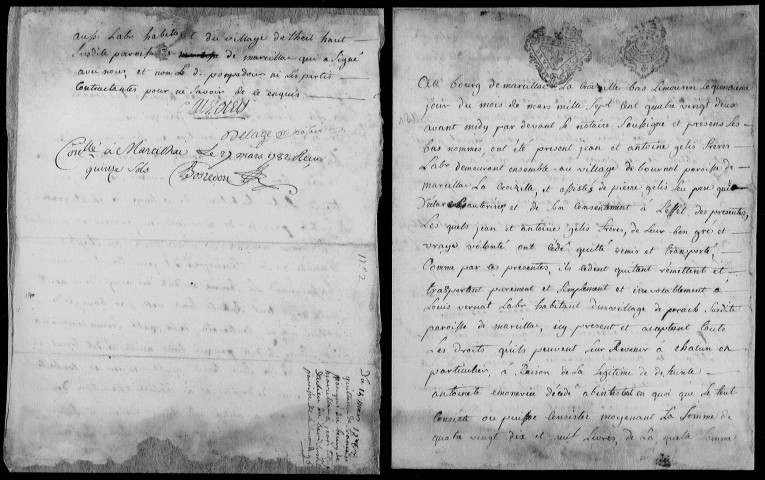 aussi Labr habitant du village de theil haut
Susdite paroisse de marcillac qui a Signé
avec nous et non Le d. pompadour ni Les parties
Contractantes pour ne Savoir de ce enquis
Delage
Coullé à Marcilhac Le 27 mars 1782 Reçu
quinze Sols
Bosredon
1782
Du 14 mars 1782
Au bourg de marcillac La Croizille bas Limousin Le quatorzieme
jour du mois de mars mille Sept Cent quatre vingt deux
avant midy par devant Le notaire Soussigné et presens Les
bas nommés, ont été present jean et antoine gelis freres
Labr demeurant ensemble au village de bournet paroisse de
marcillac La Croizille, et assistés de pierre gelis Leur pere qui
declare autoriser et de Son Consentement à L'effet des presentes,
Les quels jean et antoine gelis freres, de Leur bon gré et
vraye volonté ont Cedé quitté demis et transporté,
Comme par ces presentes, ils Cedent quittent remettent et
trasportent purement et Simplement et irrevocablement a
Louis vernat Labr habitant du village de Susdite
paroisse de marcillac, icy present et acceptant touts
Les droits qu'ils peuvent Leur Revenir à chatun en
particulier, a Raison de La Legitime de defunte
antoinete decedé abintestat en quoi que Le tout
Consiste ou puisse Consister moyenant La Somme de
quatre vingt dix et neuf Livres, de La quelle Somme